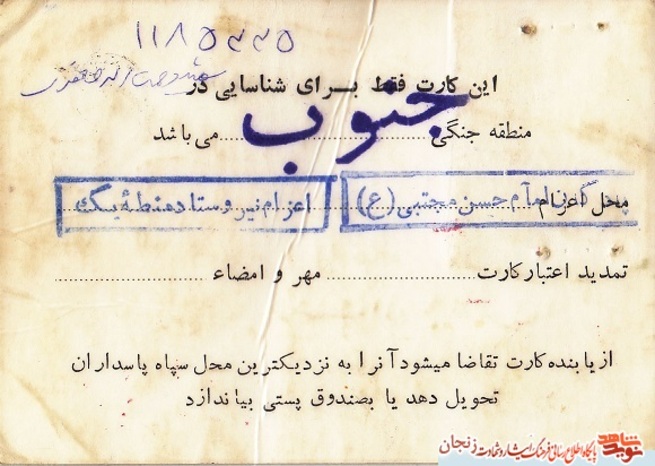 ۱۱۸۵۳۳۵
شهید وحمت اله جعفری
این کارت فقط برای شناسایی در
منطقه جنگی جنوب می باشد
محل اعزام امام حسن مجتبی (ع) اعزام نیرو ستاد منطقه یک
تمدید اعتبار کارت ............ مهر و امضاء ............
از یابنده کارت تقاضا میشود آنرا به نزدیکترین محل سپاه پاسداران
تحویل دهد یا بصندوق پستی بیاندازد
نوید شاهد
پایگاه اطلاع رسانی فرهنگ ایثار و شهادت زنجان